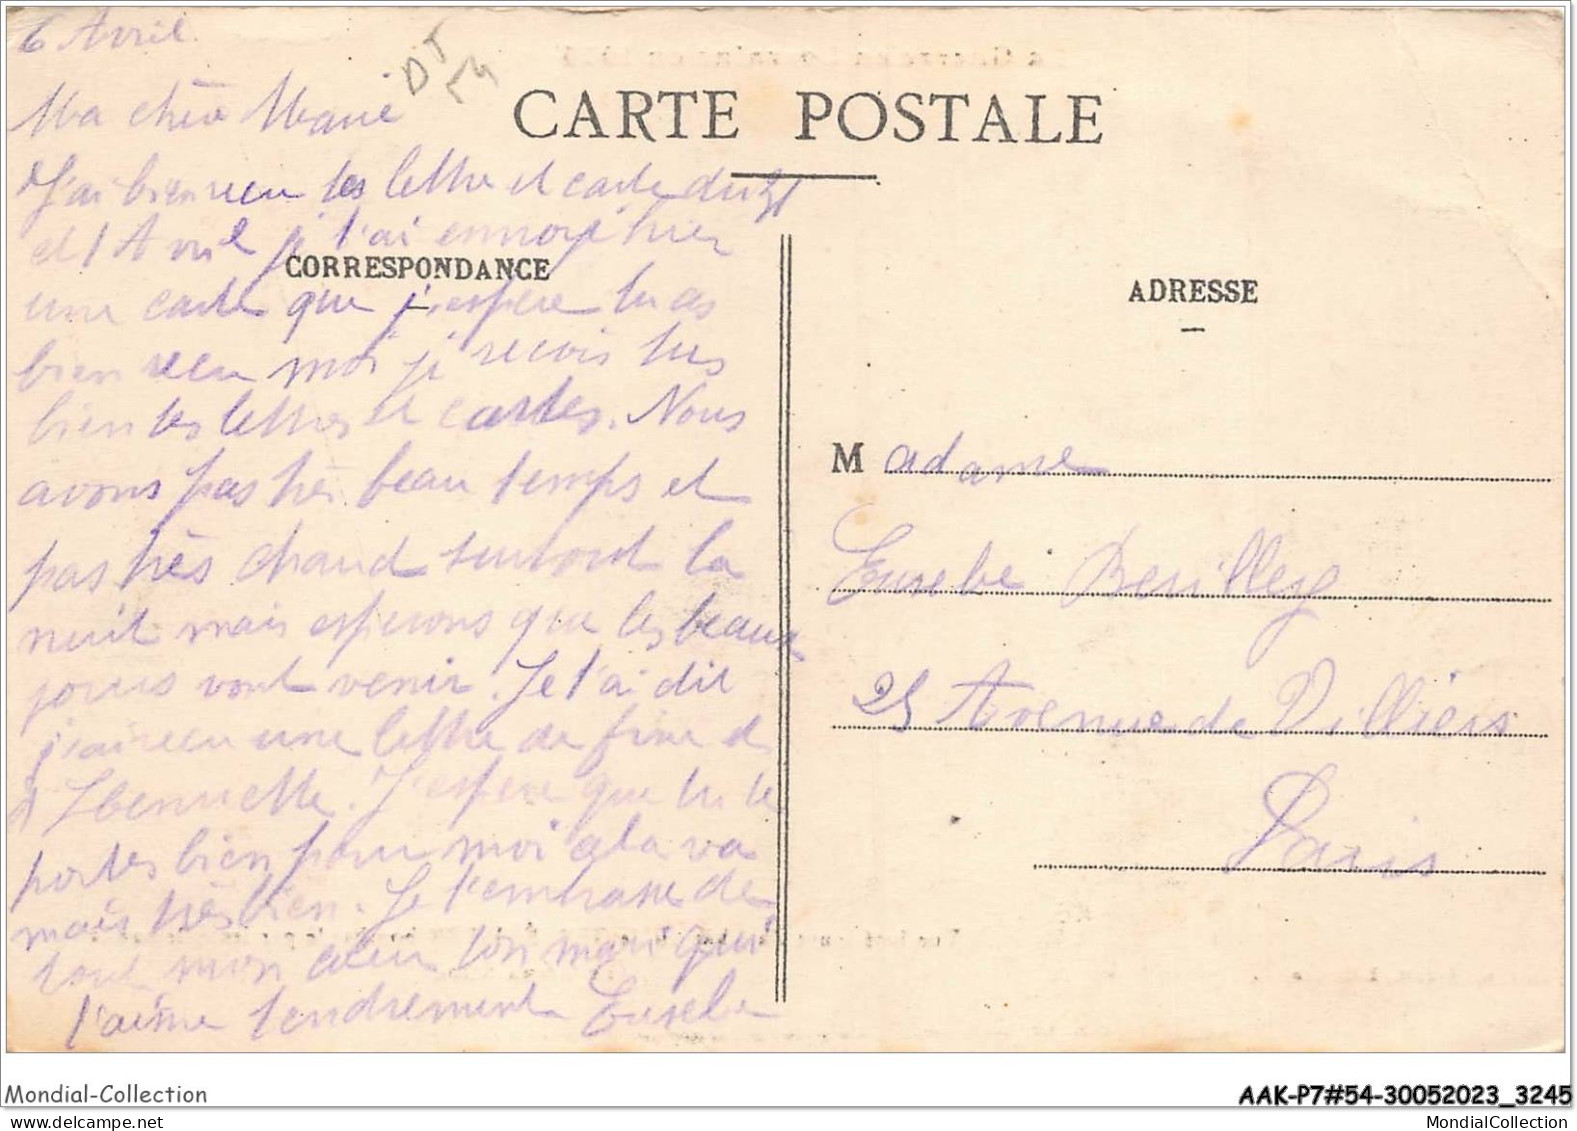 6 Avril
DT
54
CARTE POSTALE
Ma chère Marie
J'ai bien reçu tes lettre et carte du 31
et 1 Avril je t'ai envoyé hier
CORRESPONDANCE
une carte que j'espère tu as
bien reçu moi je reçois tres
bien tes lettres et cartes. Nous
avons pas très beau temps et
pas très chaud surtout la
nuit mais esperons que les beaux
jours vont venir. Je t'ai dit
j'ai reçu une lettre de fine et
d'. J'espère que tu te
portes bien pour moi cela va
mais très bien. Je t'embrasse de
tout mon cœur ton mari qui
t'aime tendrement Eusebe
ADRESSE
Madame
Eusebe
25 Avenue de Villiers
Paris
Mondial-Collection
AAK-P7#54-30052023_3245
MondialCollection
MondialCollection